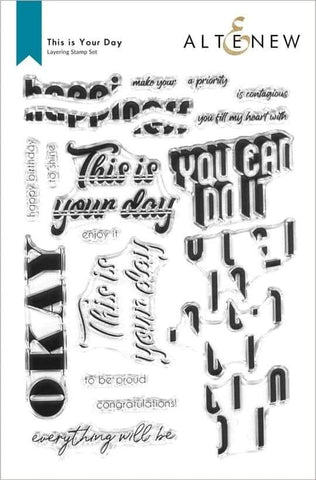 This is Your Day
Layering Stamp Set
ALTENEW
hope
happiness
make your
a priority
is contagious
you fill my heart with
happy birthday
to shine
This is
your day
enjoy it
YOU CAN
DO IT
OKAY
This is
your day
to be proud
congratulations!
everything will be